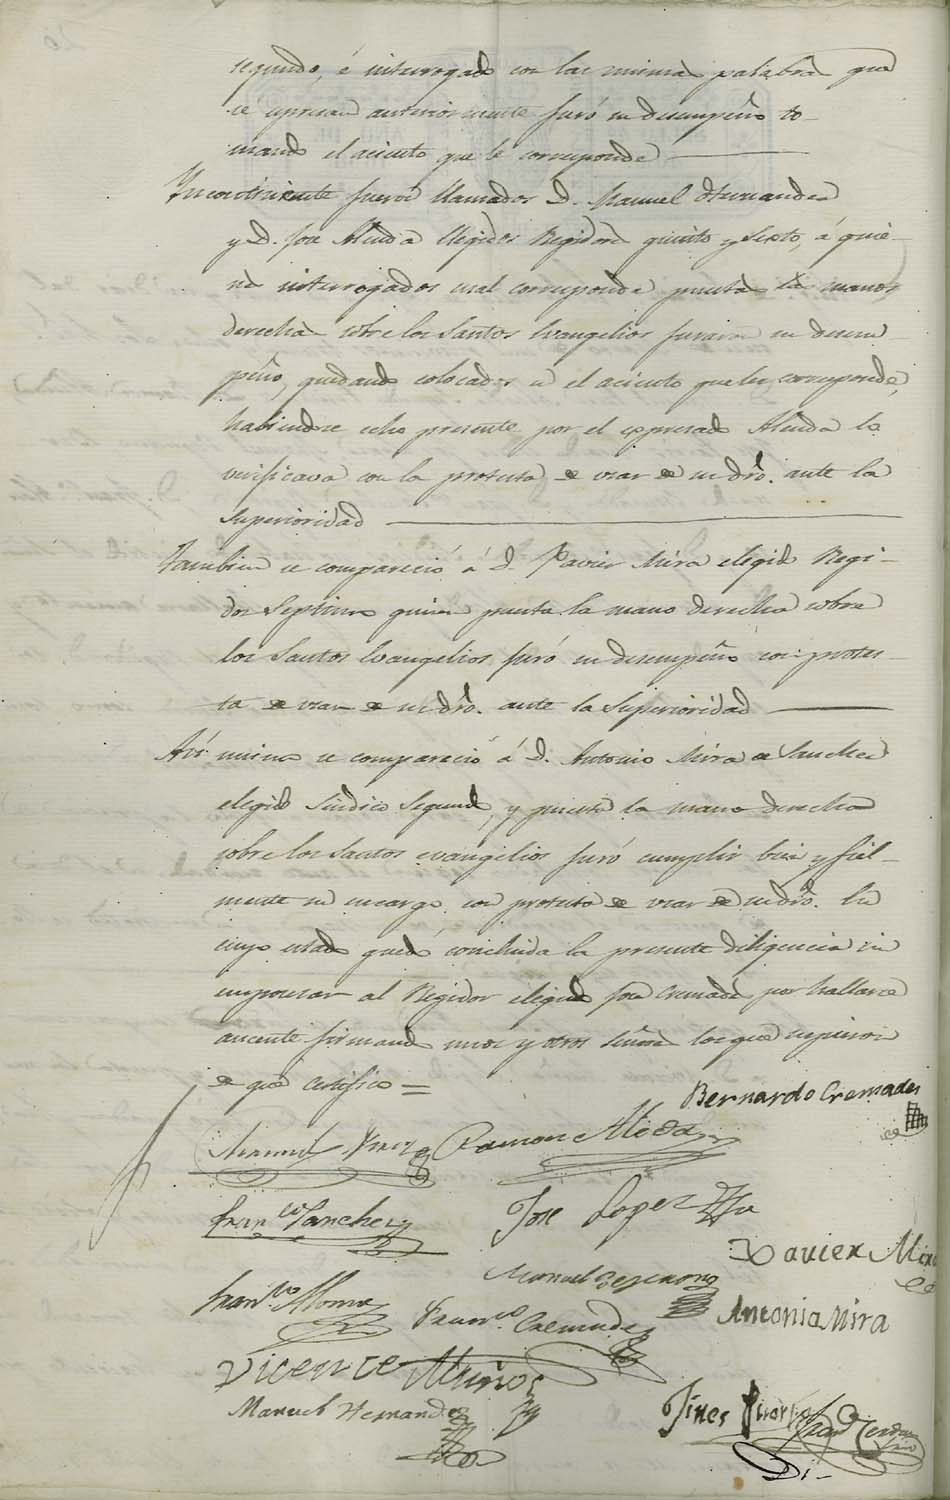 segundo, é interrogado con las mismas palabras que
se expresan anteriormente juró su desempeño to-
mando el aciento que le corresponde
Yncontinente fueron llamados D. Manuel Hernandez
y D. José Alenda elegidos Regidores quinto y Sesto, á quie-
nes interrogados cual corresponde puestas las manos
derechas sobre los Santos Evangelios juraron su desem-
peño, quedando colocados en el aciento que les corresponde,
habiendose echo presente por el expresado Alenda lo
verificava con la protesta de usar de su dro. ante la
Superioridad
Tambien se compareció á D. Xavier Mira elegido Regi-
dor Septimo quien puesta la mano derecha sobre
los Santos Evangelios juró su desempeño con protes-
ta de usar de su dro. ante la Superioridad
Asi mismo se compareció á D. Antonio Mira de Sanchez
elegido Sindico Segundo, y puesta la mano derecha
sobre los Santos evangelios juró cumplir bien y fiel-
mente su encargo con protesta de usar de su dro. En
cuyo estado quedó concluida la presente diligencia sin
emposesar al Regidor elegido José Cremades por hallarse
ausente firmando unos y otros Señores los que supieron
de que certifico =
Bernardo Cremades
Manuel Ramon Alcda
Franco. Sanchez José Lopez
Xavier Mira
Franco. Manuel
Franco. Cremades Antonio Mira
Vicente Muños
Manuel Hernandez Gines